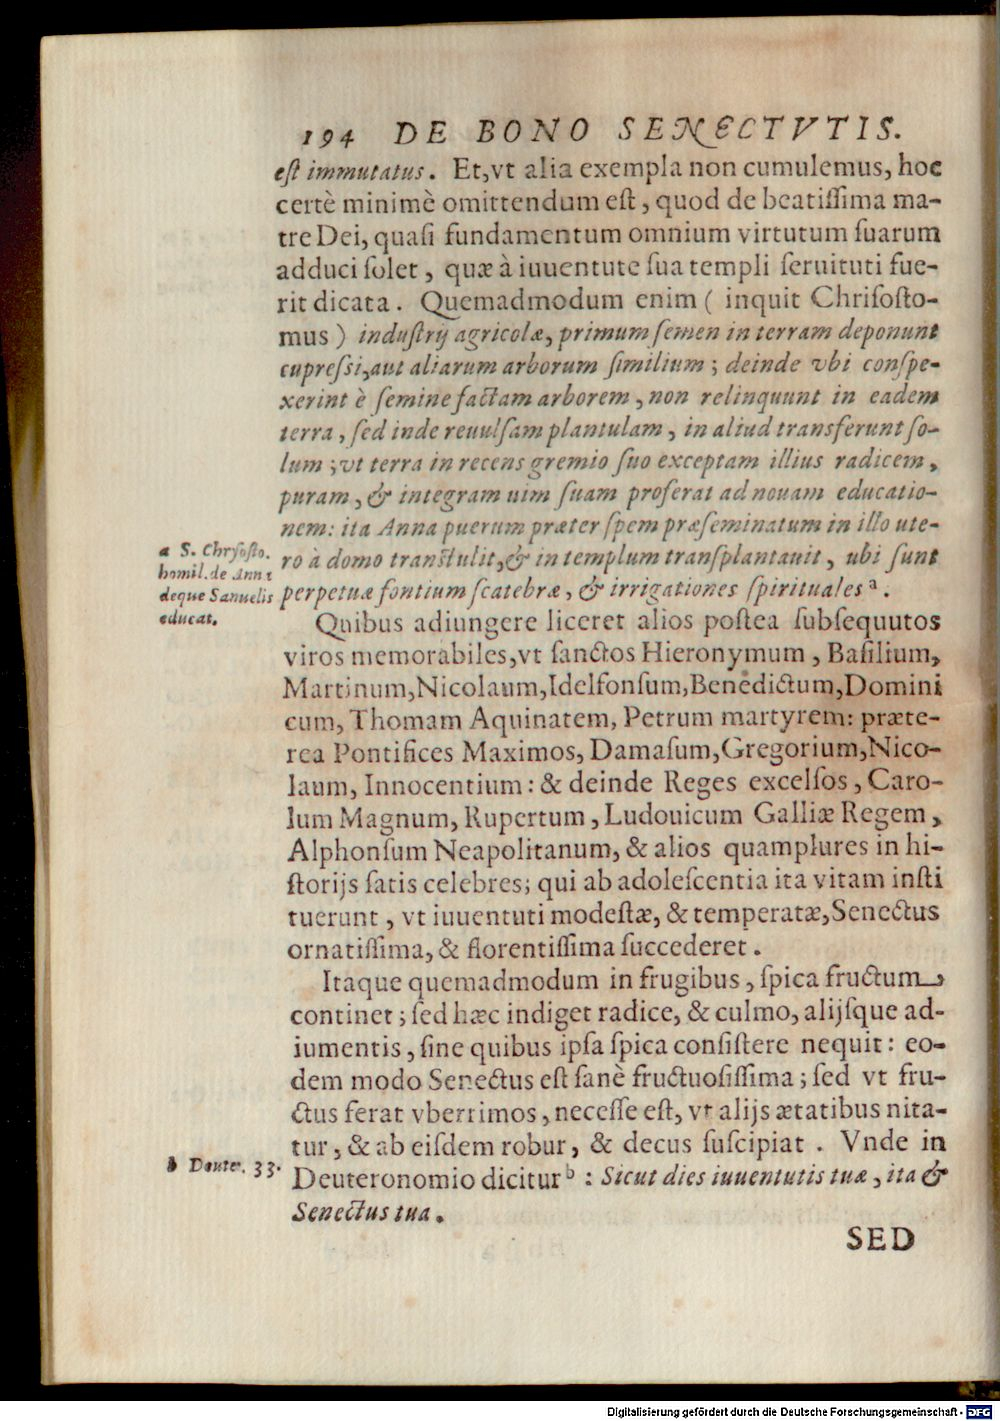 194 DE BONO SENECTVTIS.
est immutatus. Et, vt alia exempla non cumulemus, hoc
certè minimè omittendum est, quod de beatissima ma-
tre Dei, quasi fundamentum omnium virtutum suarum
adduci solet, quæ à iuuentute sua templi seruituti fue-
rit dicata. Quemadmodum enim (inquit Chrisosto-
mus) industrij agricolæ, primum semen in terram deponunt
cupressi, aut aliarum arborum similium; deinde vbi conspe-
xerint è semine factam arborem, non relinquunt in eadem
terra, sed inde reuulsam plantulam, in aliud transferunt so-
lum; vt terra in recens gremio suo exceptam illius radicem,
puram, & integram uim suam proferat ad nouam educatio-
nem: ita Anna puerum præter spem præseminatum in illo ute-
ro à domo transtulit, & in templum transplantauit, ubi sunt
perpetuæ fontium scatebræ, & irrigationes spirituales a.
a S. Chrysosto.
homil. de Anna
deque Samuelis
educat.
Quibus adiungere liceret alios postea subsequutos
viros memorabiles, vt sanctos Hieronymum, Basilium,
Martinum, Nicolaum, Idelfonsum, Benedictum, Domini
cum, Thomam Aquinatem, Petrum martyrem: præte-
rea Pontifices Maximos, Damasum, Gregorium, Nico-
laum, Innocentium: & deinde Reges excelsos, Caro-
lum Magnum, Rupertum, Ludouicum Galliæ Regem,
Alphonsum Neapolitanum, & alios quamplures in hi-
storijs satis celebres; qui ab adolescentia ita vitam insti
tuerunt, vt iuuentuti modestæ, & temperatæ, Senectus
ornatissima, & florentissima succederet.
Itaque quemadmodum in frugibus, spica fructum
continet; sed hæc indiget radice, & culmo, alijsque ad-
iumentis, sine quibus ipsa spica consistere nequit: eo-
dem modo Senectus est sanè fructuosissima; sed vt fru-
ctus ferat vberrimos, necesse est, vt alijs ætatibus nita-
tur, & ab eisdem robur, & decus suscipiat. Vnde in
b Deuter. 33.
Deuteronomio dicitur b: Sicut dies iuuentutis tuæ, ita &
Senectus tua.
SED
Digitalisierung gefördert durch die Deutsche Forschungsgemeinschaft - DFG